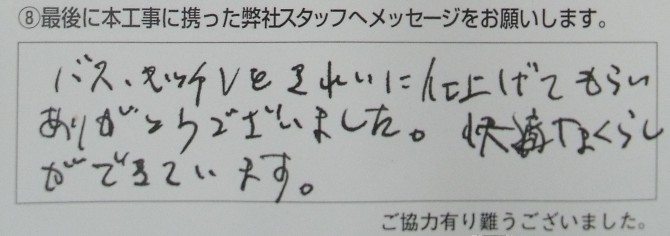 ⑧最後に本工事に携った弊社スタッフへメッセージをお願いします。
バス、キッチンをきれいに仕上げてもらい
ありがとうございました。快適なくらし
ができています。
ご協力有り難うございました。